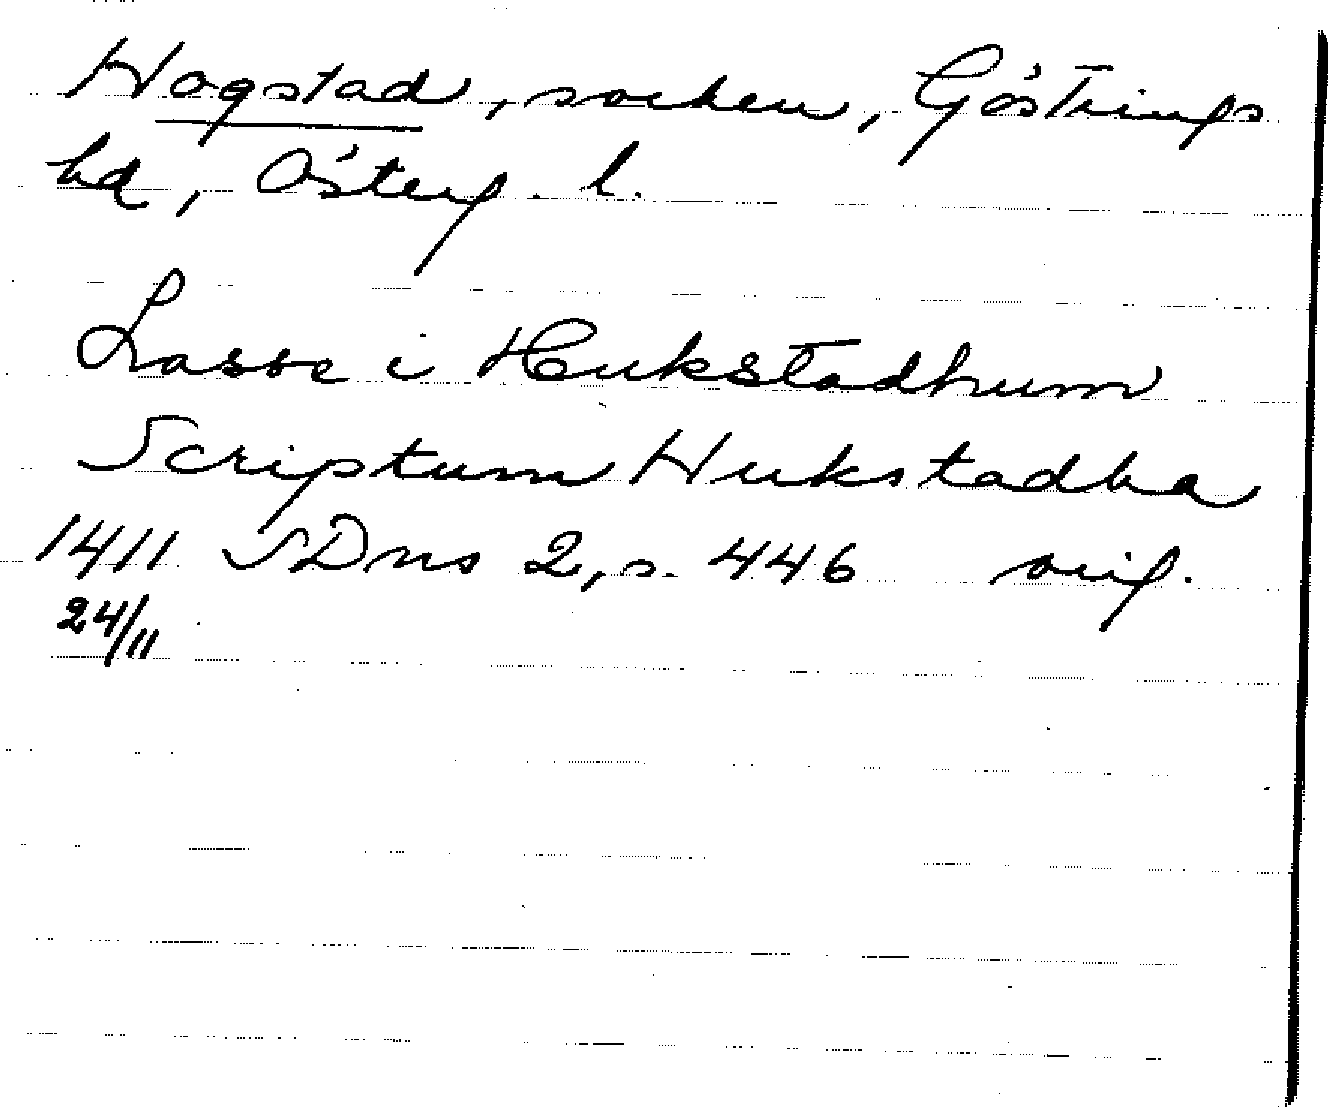 Hogstad, socken, Göstrings
hd, Österg. l.
Lasse i Hukstadhum
Scriptum Hukstadha
1411 SDns 2, s. 446 orig.
24/11